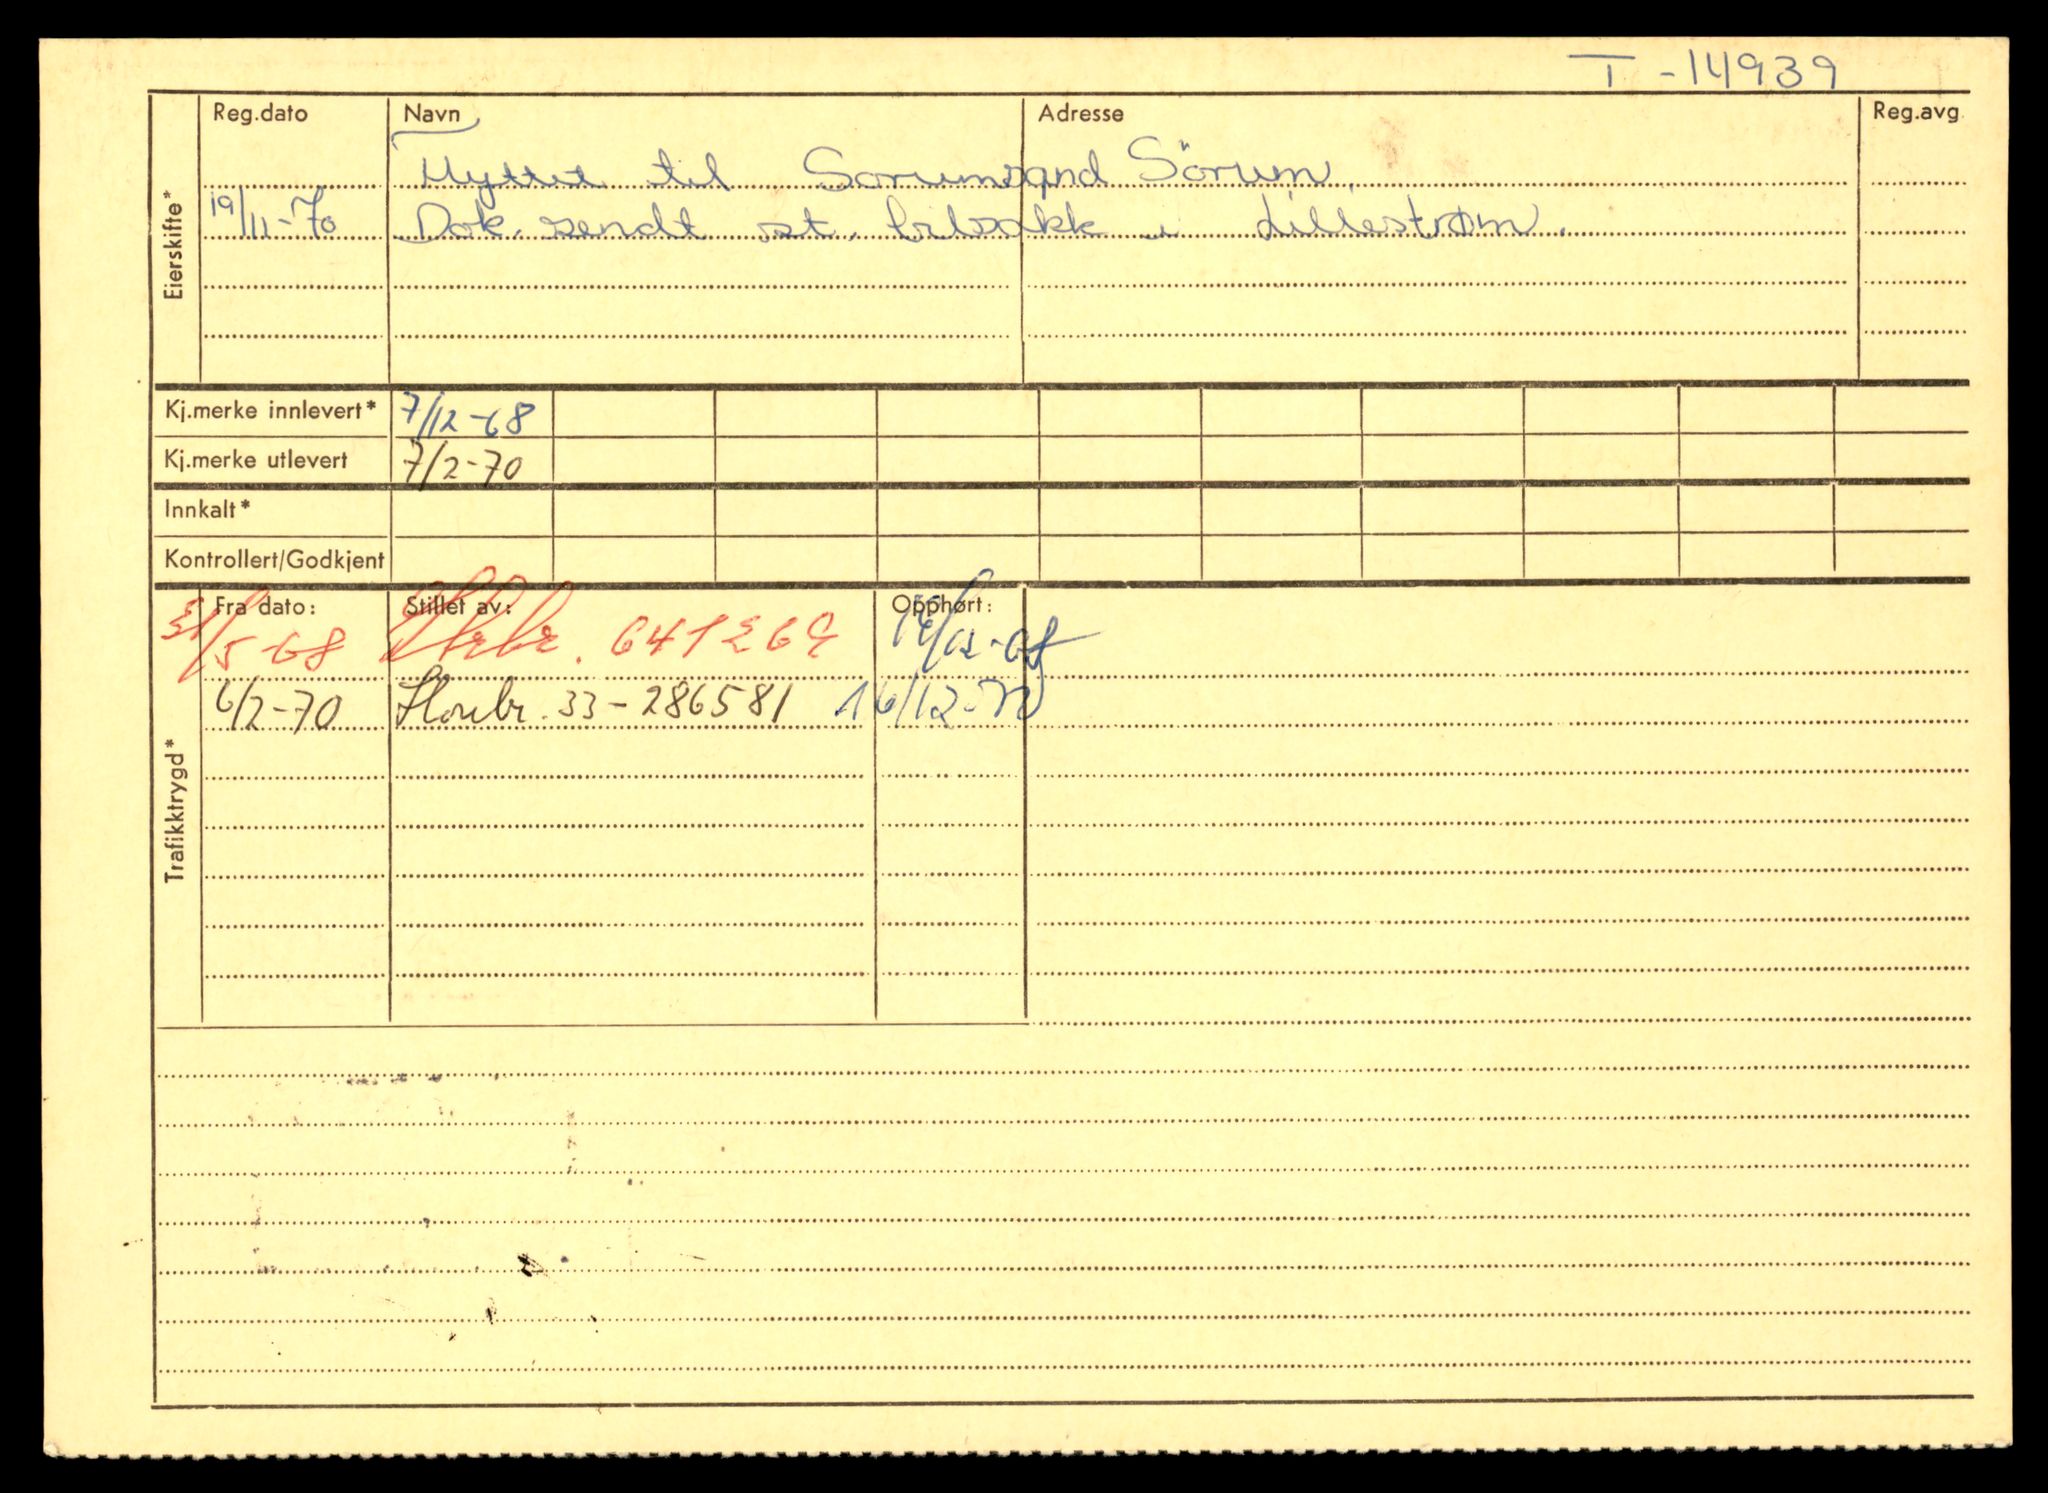 T-14939
Reg.dato Navn Adresse Reg.avg.
Eierskifte*
Flyttet til Sorumsand Sörum.
19/11-70 Dok. sendt st. bilsakk i Lillestrøm.
Kj.merke innlevert* 7/12-68
Kj.merke utlevert 7/2-70
Innkalt*
Kontrollert/Godkjent
Trafikktrygd*
Fra dato: Stillet av: Opphørt:
/5-68 641269 /12-68
6/2-70 33-286581 16/12-70